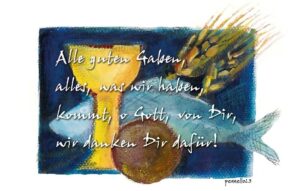 Alle guten Gaben,
alles, was wir haben,
kommt, o Gott, von Dir,
wir danken Dir dafür!